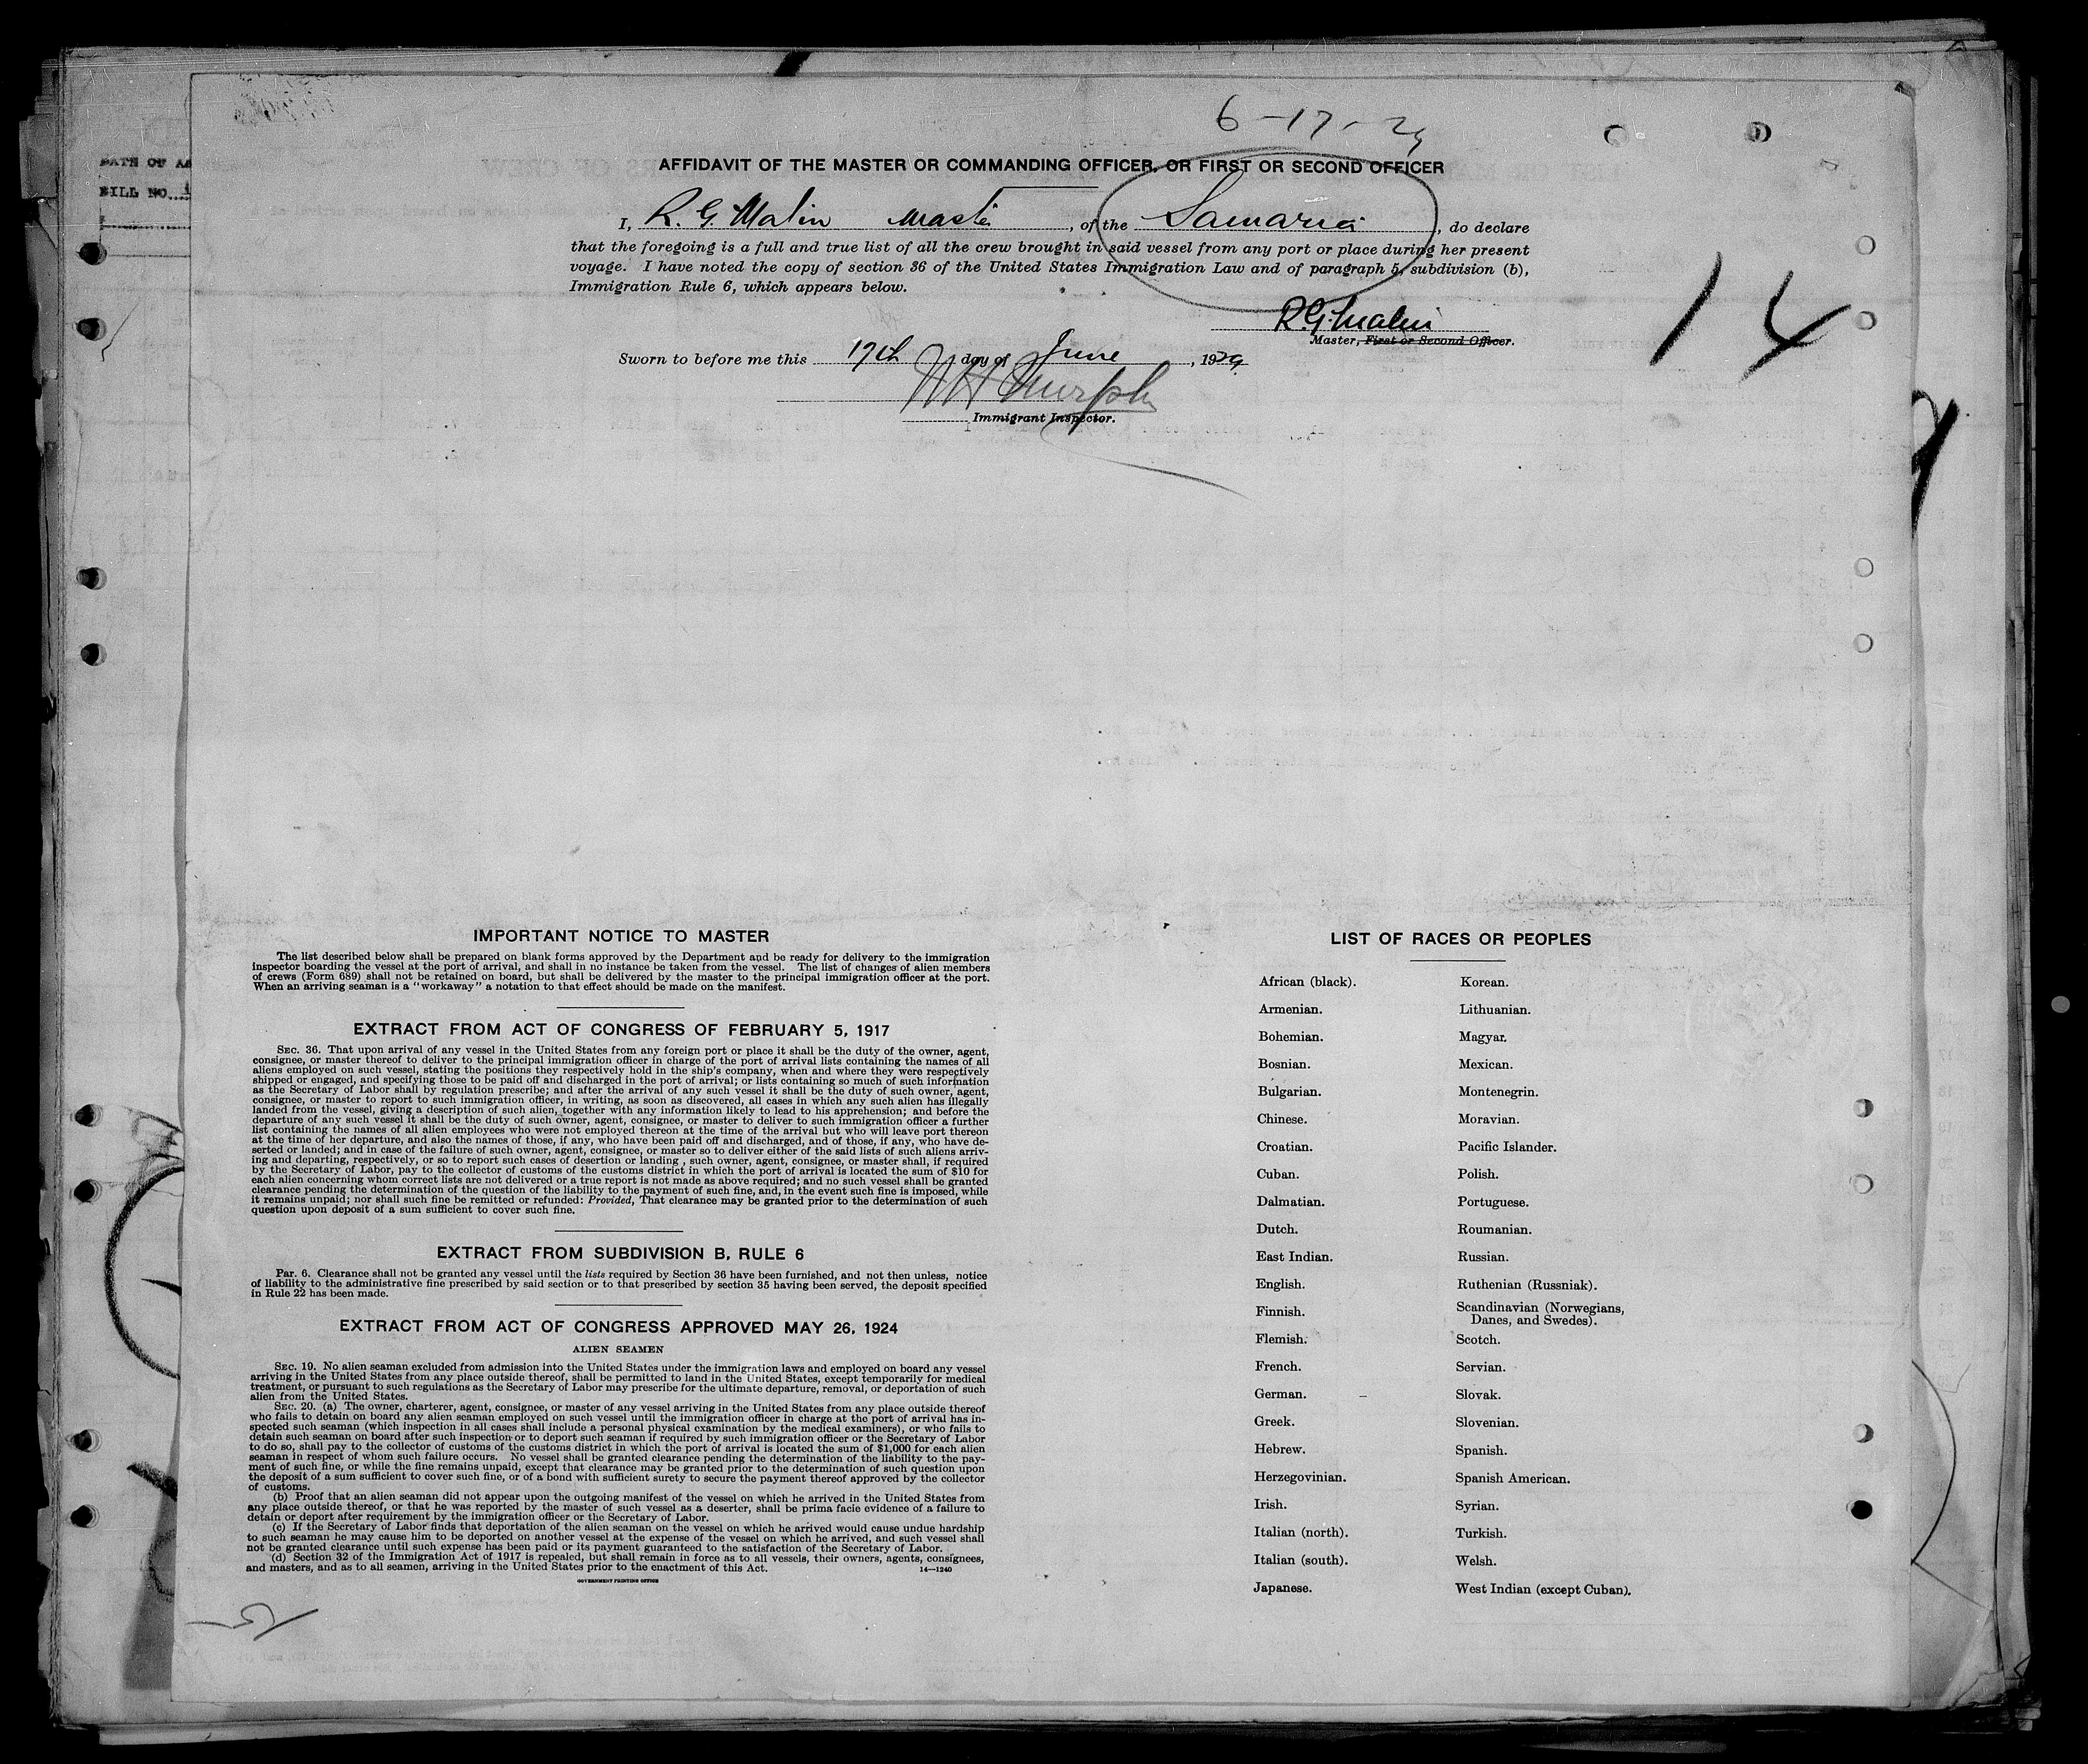 6-17-29
DATE OF AR
BILL NO.
AFFIDAVIT OF THE MASTER OR COMMANDING OFFICER, OR FIRST OR SECOND OFFICER
I, R. G. Malin Master, of the Samaria, do declare
that the foregoing is a full and true list of all the crew brought in said vessel from any port or place during her present
voyage. I have noted the copy of section 36 of the United States Immigration Law and of paragraph 5, subdivision (b),
Immigration Rule 6, which appears below.
14
R. G. Malin
Master, First or Second Officer.
Sworn to before me this 17th day of June, 1929.
Murphy
Immigrant Inspector.
IMPORTANT NOTICE TO MASTER
The list described below shall be prepared on blank forms approved by the Department and be ready for delivery to the immigration
inspector boarding the vessel at the port of arrival, and shall in no instance be taken from the vessel. The list of changes of alien members
of crews (Form 689) shall not be retained on board, but shall be delivered by the master to the principal immigration officer at the port.
When an arriving seaman is a "workaway" a notation to that effect should be made on the manifest.
EXTRACT FROM ACT OF CONGRESS OF FEBRUARY 5, 1917
SEC. 36. That upon arrival of any vessel in the United States from any foreign port or place it shall be the duty of the owner, agent,
consignee, or master thereof to deliver to the principal immigration officer in charge of the port of arrival lists containing the names of all
aliens employed on such vessel, stating the positions they respectively hold in the ship's company, when and where they were respectively
shipped or engaged, and specifying those to be paid off and discharged in the port of arrival; or lists containing so much of such information
as the Secretary of Labor shall by regulation prescribe; and after the arrival of any such vessel it shall be the duty of such owner, agent,
consignee, or master to report to such immigration officer, in writing, as soon as discovered, all cases in which any such alien has illegally
landed from the vessel, giving a description of such alien, together with any information likely to lead to his apprehension; and before the
departure of any such vessel it shall be the duty of such owner, agent, consignee, or master to deliver to such immigration officer a further
list containing the names of all alien employees who were not employed thereon at the time of the arrival but who will leave port thereon
at the time of her departure, and also the names of those, if any, who have been paid off and discharged, and of those, if any, who have de-
serted or landed; and in case of the failure of such owner, agent, consignee, or master so to deliver either of the said lists of such aliens arriv-
ing and departing, respectively, or so to report such cases of desertion or landing, such owner, agent, consignee, or master shall, if required
by the Secretary of Labor, pay to the collector of customs of the customs district in which the port of arrival is located the sum of $10 for
each alien concerning whom correct lists are not delivered or a true report is not made as above required; and no such vessel shall be granted
clearance pending the determination of the question of the liability to the payment of such fine, and, in the event such fine is imposed, while
it remains unpaid; nor shall such fine be remitted or refunded: Provided, That clearance may be granted prior to the determination of such
question upon deposit of a sum sufficient to cover such fine.
EXTRACT FROM SUBDIVISION B, RULE 6
Par. 6. Clearance shall not be granted any vessel until the lists required by Section 36 have been furnished, and not then unless, notice
of liability to the administrative fine prescribed by said section or to that prescribed by section 35 having been served, the deposit specified
in Rule 22 has been made.
EXTRACT FROM ACT OF CONGRESS APPROVED MAY 26, 1924
ALIEN SEAMEN
SEC. 19. No alien seaman excluded from admission into the United States under the immigration laws and employed on board any vessel
arriving in the United States from any place outside thereof, shall be permitted to land in the United States, except temporarily for medical
treatment, or pursuant to such regulations as the Secretary of Labor may prescribe for the ultimate departure, removal, or deportation of such
alien from the United States.
SEC. 20. (a) The owner, charterer, agent, consignee, or master of any vessel arriving in the United States from any place outside thereof
who fails to detain on board any alien seaman employed on such vessel until the immigration officer in charge at the port of arrival has in-
spected such seaman (which inspection in all cases shall include a personal physical examination by the medical examiners), or who fails to
detain such seaman on board after such inspection or to deport such seaman if required by such immigration officer or the Secretary of Labor
to do so, shall pay to the collector of customs of the customs district in which the port of arrival is located the sum of $1,000 for each alien
seaman in respect of whom such failure occurs. No vessel shall be granted clearance pending the determination of the liability to the pay-
ment of such fine, or while the fine remains unpaid, except that clearance may be granted prior to the determination of such question upon
the deposit of a sum sufficient to cover such fine, or of a bond with sufficient surety to secure the payment thereof approved by the collector
of customs.
(b) Proof that an alien seaman did not appear upon the outgoing manifest of the vessel on which he arrived in the United States from
any place outside thereof, or that he was reported by the master of such vessel as a deserter, shall be prima facie evidence of a failure to
detain or deport after requirement by the immigration officer or the Secretary of Labor.
(c) If the Secretary of Labor finds that deportation of the alien seaman on the vessel on which he arrived would cause undue hardship
to such seaman he may cause him to be deported on another vessel at the expense of the vessel on which he arrived, and such vessel shall
not be granted clearance until such expense has been paid or its payment guaranteed to the satisfaction of the Secretary of Labor.
(d) Section 32 of the Immigration Act of 1917 is repealed, but shall remain in force as to all vessels, their owners, agents, consignees,
and masters, and as to all seamen, arriving in the United States prior to the enactment of this Act.
14—1240
GOVERNMENT PRINTING OFFICE
LIST OF RACES OR PEOPLES
African (black).
Armenian.
Bohemian.
Bosnian.
Bulgarian.
Chinese.
Croatian.
Cuban.
Dalmatian.
Dutch.
East Indian.
English.
Finnish.
Flemish.
French.
German.
Greek.
Hebrew.
Herzegovinian.
Irish.
Italian (north).
Italian (south).
Japanese.
Korean.
Lithuanian.
Magyar.
Mexican.
Montenegrin.
Moravian.
Pacific Islander.
Polish.
Portuguese.
Roumanian.
Russian.
Ruthenian (Russniak).
Scandinavian (Norwegians,
Danes, and Swedes).
Scotch.
Servian.
Slovak.
Slovenian.
Spanish.
Spanish American.
Syrian.
Turkish.
Welsh.
West Indian (except Cuban).